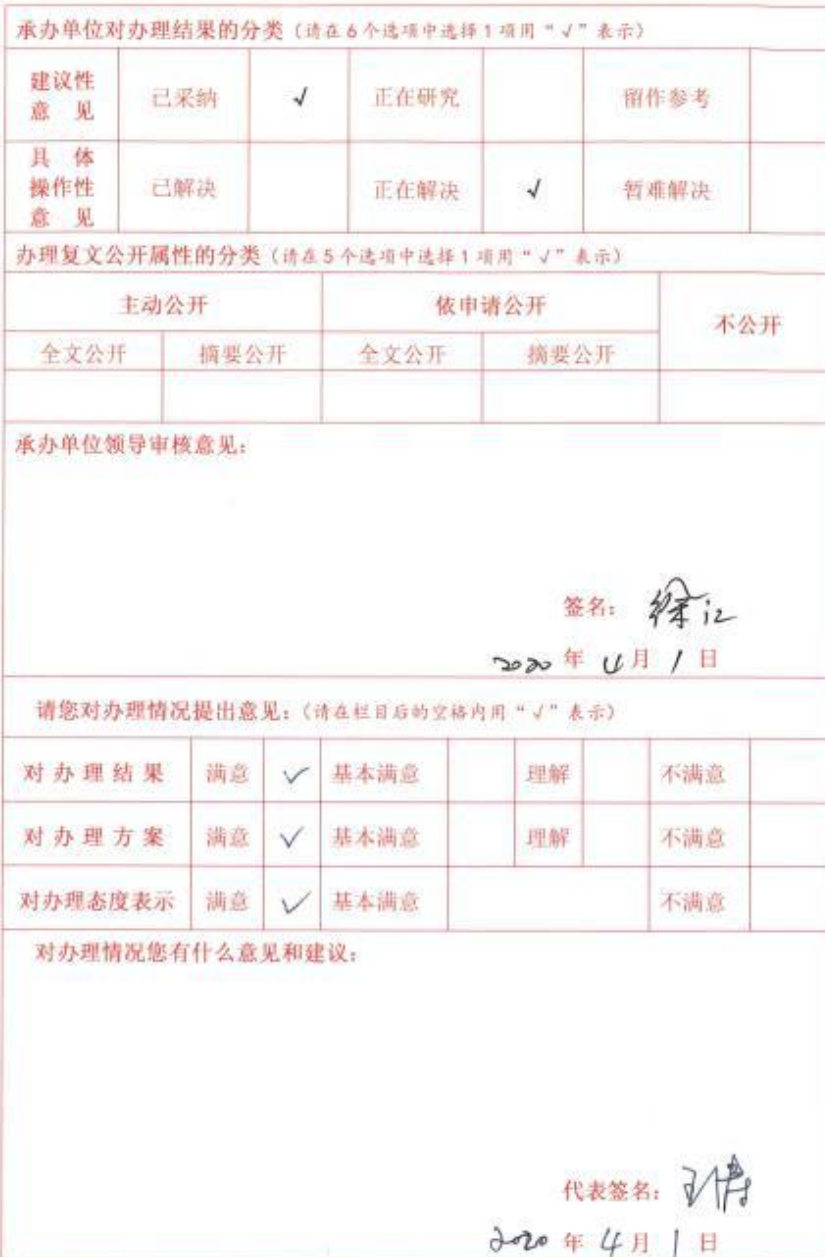 承办单位对办理结果的分类（请在6个选项中选择1项用“√”表示）
建议性意见 已采纳 √ 正在研究 留作参考
具体操作性意见 已解决 正在解决 √ 暂难解决
办理复文公开属性的分类（请在5个选项中选择1项用“√”表示）
主动公开 依申请公开 不公开
全文公开 摘要公开 全文公开 摘要公开
承办单位领导审核意见：
签名：徐江
2020年4月1日
请您对办理情况提出意见：（请在栏目后的空格内用“√”表示）
对办理结果 满意 √ 基本满意 理解 不满意
对办理方案 满意 √ 基本满意 理解 不满意
对办理态度表示 满意 √ 基本满意 不满意
对办理情况您有什么意见和建议：
代表签名：王倩
2020年4月1日